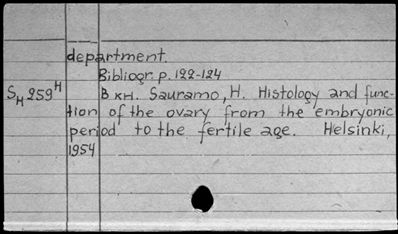 department.
Bibliogr. p. 122-124
S_H 259^H В кн. Sauramo, H. Histology and func-
tion of the ovary from the embryonic
period to the fertile age. Helsinki,
1954